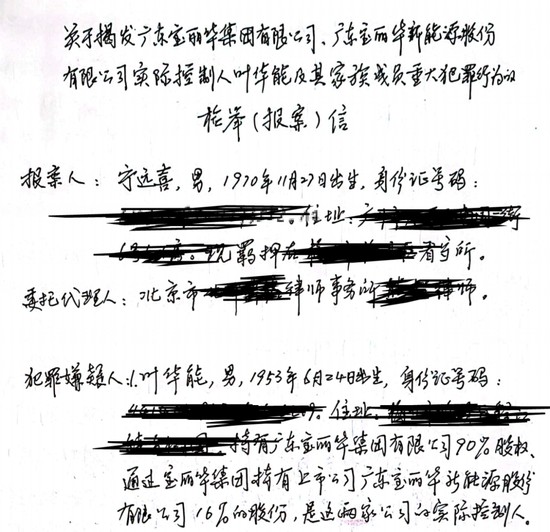 关于揭发广东宝丽华集团有限公司、广东宝丽华新能源股份
有限公司实际控制人叶华能及其家族成员重大犯罪行为的
检举(报案)信
报案人：宁远喜，男，1970年11月27日出生，身份证号码：
。住址：
。现羁押在看守所。
委托代理人：北京市律师事务所律师。
犯罪嫌疑人：1.叶华能，男，1953年6月24日出生，身份证号码：
。住址：
，持有广东宝丽华集团有限公司90%股权、
通过宝丽华集团持有上市公司广东宝丽华新能源股份
有限公司16%的股份，是这两家公司的实际控制人。